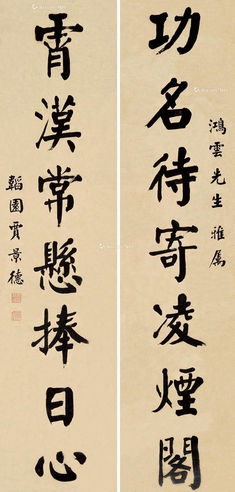 功名待寄凌煙閣
鴻雲先生雅屬
霄漢常懸捧日心
韜園賈景德